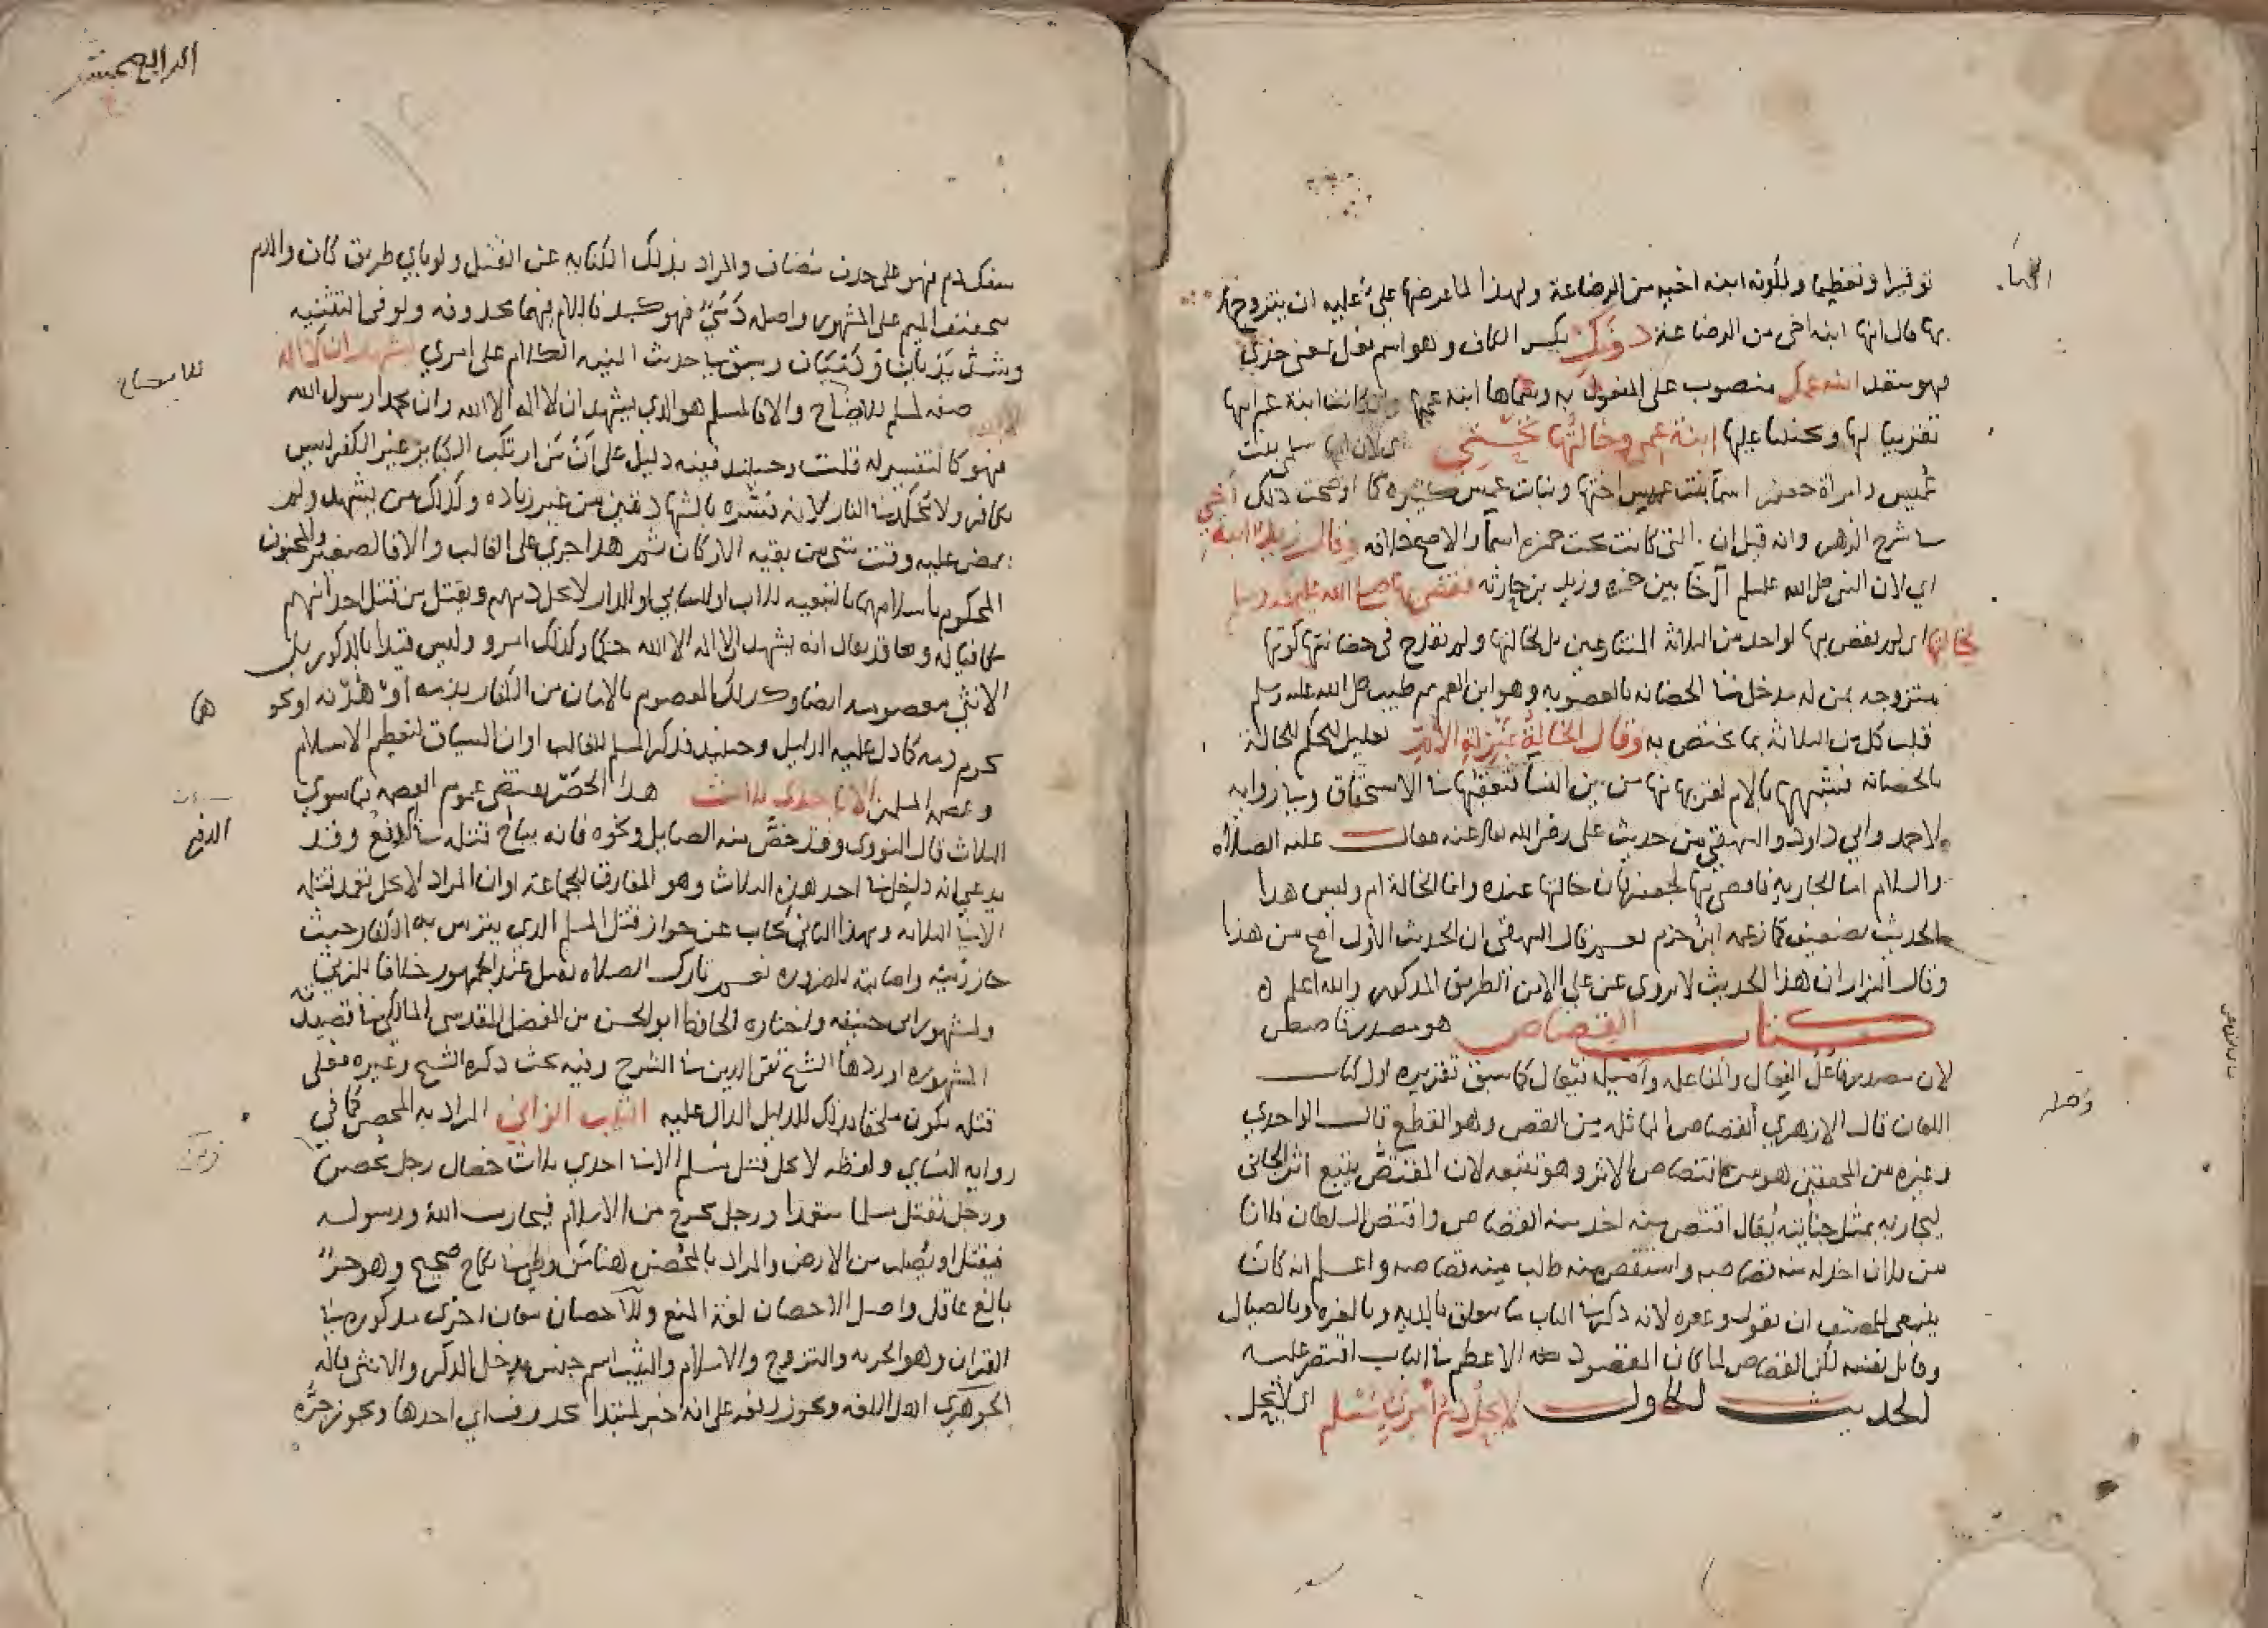 توقيرا وتعظيما ولكونه ابنه اخيه من الرضاعة ولهذا لما عرضها علي عليه ان يتزوج
بها قال انها ابنه اخي من الرضاعة دونك بكسر الكاف وهو اسم فعل بمعنى خذي
فهو متعد ابنه عمك منصوب على المفعول به وسماها ابنة عمها وان كانت ابنة عم ابيها
تقريبا لها وتحننا عليها ابنة عمي وخالتها تحتي اي لان امها سلمى بنت
عميس وامراة جعفر اسما بنت عميس اختها وبنات عميس كثيرة كما اوضحت ذلك
في شرح الزهر وانه قيل ان التي كانت تحت حمزه اسما والاصح خلافه وقال زيد ابنة اخي
اي لان النبي صلى الله عليه وسلم آخا بين حمزه وزيد بن حارثه فقضى بها صلى الله عليه وسلم
لخالتها اي لم يقض بها لواحد من الثلاثة المتنازعين بل لخالتها ولم يقدح في حضانتها كونها
متزوجه بمن له مدخل في الحضانه بالعصوبه وهو ابن العم ثم طيب صلى الله عليه وسلم
قلب كل من الثلاثة بما يختص به وقال الخالة بمنزلة الام تعليل للحكم للخالة
بالحضانه فشبهها بالام لقربها منها من بين النسا فتعقبها في الاستحقاق وفي رواية
لاحمد وابي داود والبيهقي من حديث علي رضي الله تعالى عنه فقالت عليه الصلاة
والسلام اما الجارية فاقضي بها لجعفر فان خالتها عنده وانما الخالة ام وليس هذا
الحديث بضعيف كما زعمه ابن حزم نعم قال البيهقي ان الحديث الاول اصح من هذا
وقال البزار ان هذا الحديث لا يروى عن علي الا من الطريق المذكور والله اعلم
كتاب القصاص هو مصدر قاصص
لان مصدر فاعل الفعال والمفاعله واصله فيعال كما سبق تقريره اول كتاب
اللعان قال الازهري القصاص المماثله من القص وهو القطع قال الواحدي
وغيره من المحققين هو من اقتصاص الاثر وهو تتبعه لان المقتص يتبع اثر الجاني
ليجازيه بمثل جنايته يقال اقتص منه اخذ منه القصاص واقتص السلطان فلانا
من فلان اخذ له منه قصاصه واستقص منه طالب منه قصاصه واعلم انه كان
ينبغي للمصنف ان يقول وغيره لانه ذكر في الباب ما يتعلق بالدية وبالغره وبالصيال
وقاتل نفسه لكن القصاص لما كان المقصود منه الاعظم في الباب اقتصر عليه
الحديث الاول لا يحل دم امرئ مسلم اي لا يحل
الرابع عشر
سفك دم فهو على حذف مضاف والمراد بذلك الكناية عن القتل ولو باي طريق كان والدم
بتخفيف الميم على المشهور واصله دمي فهو كيد فاللام فيهما محذوفه ولو في التثنيه
وشذ يديان ودميان وسبق في حديث النيه الكلام على امرئ يشهد ان لا اله
الا الله صفه لمسلم للايضاح والا فالمسلم هو الذي يشهد ان لا اله الا الله وان محمدا رسول الله
فهو كالتفسير له قلت وحينئذ ففيه دليل على ان من ارتكب الكبائر غير الكفر ليس
بكافر ولا يخلد في النار لانه فسره بالشهادتين من غير زياده وكذلك من يشهد ولم
يمض عليه وقت شيء من بقيه الاركان ثم هذا جرى على الغالب والا فالصغير والمجنون
المحكوم باسلامهما بالتبعيه للاب او للسابي او الدار لا يحل دمهم ويقتل من قتل احدا منهم
مكافيا له وهما قد يقال انه يشهد ان لا اله الا الله حكما وكذلك امرؤ وليس قيدا بالذكور بل
الانثى معصومه ايضا وكذلك المعصوم بالامان من الكفار بذمه او هدنه او نحو
يحرم دمه كما دل عليه الدليل وحينئذ فذكر المسلم للغالب او ان السياق لتعظيم الاسلام
وعصمة المسلمين الا باحدى ثلاث هذا الحصر يقتضي عموم العصمه فيما سوى
الثلاث قال النووي وقد خص منه الصايل ونحوه فانه يباح قتله في الدفع وقد
يدعى انه داخل في احد هذه الثلاث وهو المفارق للجماعة او ان المراد لا يحل تعمد قتله
الا في الثلاثة وبهذا الثاني يجاب عن جواز قتل المسلم الذي يتترس به الكفار حيث
جاز رميه واصابته للضروره نعم تارك الصلاه يقتل عند الجمهور خلافا للمزني
والمشهور ابي حنيفه واختاره الحافظ ابو الحسن بن المفضل المقدسي المالكي في قصيدته
المشهوره اوردها الشيخ تقي الدين في الشرح وفيه بحث ذكره الشيخ وغيره فعلى
قتله يكون ملحقا بذلك للدليل الدال عليه الثيب الزاني المراد به المحصن كما في
روايه النسائي ولفظه لا يحل قتل مسلم الا في احدى ثلاث خصال رجل محصن
ورجل يقتل مسلما متعمدا ورجل يخرج من الاسلام فيحارب الله ورسوله
فيقتل او يصلب من الارض والمراد بالمحصن هنا من وطئ في نكاح صحيح وهو حر
بالغ عاقل واصل الاحصان لغة المنع وللاحصان معان اخرى مذكوره في
القران وهو الحريه والتزوج والاسلام والثيب اسم جنس يدخل الذكر والانثى قاله
الجوهري اهل اللغه ويجوز رفعه على انه خبر لمبتدا محذوف اي احدها ويجوز جره
للايضاح
الدفع